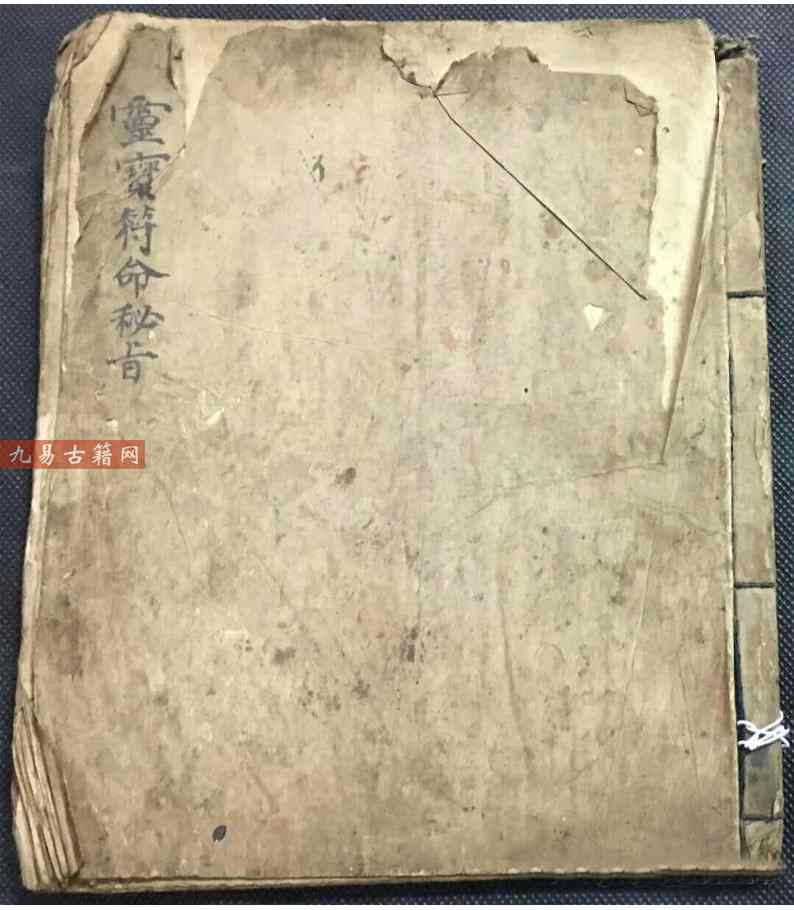 靈寶符命秘旨
九易古籍网